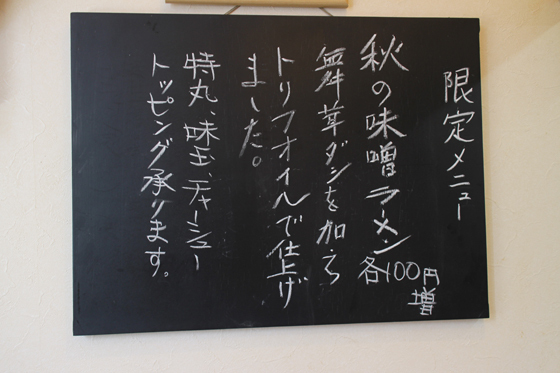 限定メニュー
秋の味噌ラーメン
各100円
増
舞茸ダシを加え
トリフオイルで仕上げ
ました。
特丸、味玉、チャーシュー
トッピング承ります。